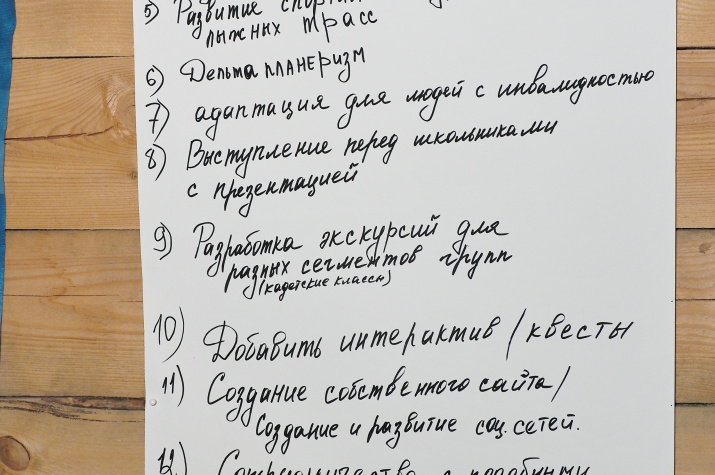 5) Развитие
лыжных трасс
6) Дельтапланеризм
7) адаптация для людей с инвалидностью
8) Выступление перед школьниками
с презентацией
9) Разработка экскурсий для
разных сегментов групп
(кадетские классы)
10) Добавить интерактив / квесты
11) Создание собственного сайта /
Создание и развитие соц. сетей.
12)